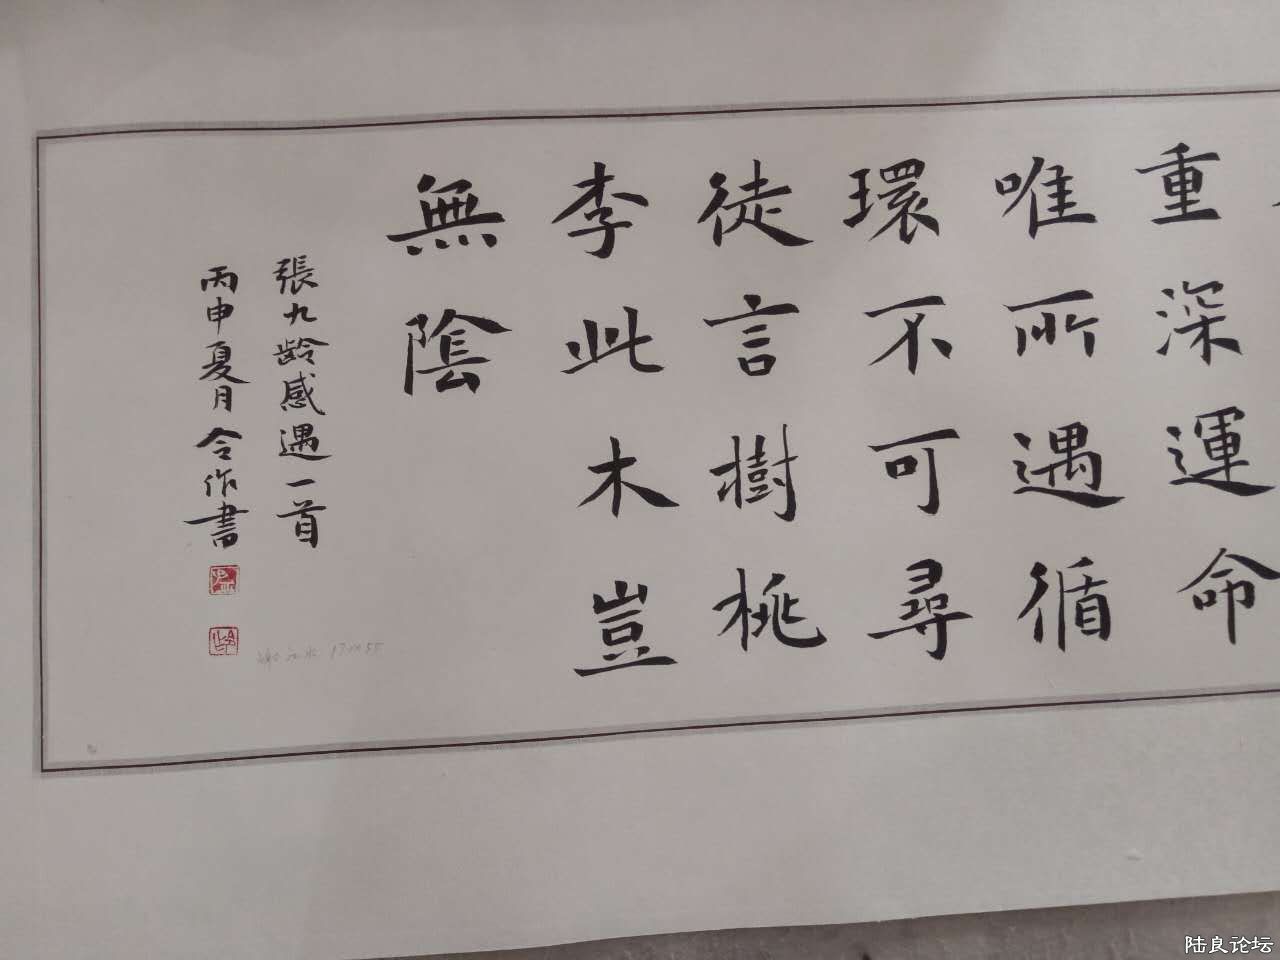 重深運命
唯所遇循
環不可尋
徒言樹桃
李此木豈
無陰
張九龄感遇一首
丙申夏月令作書
陆良论坛